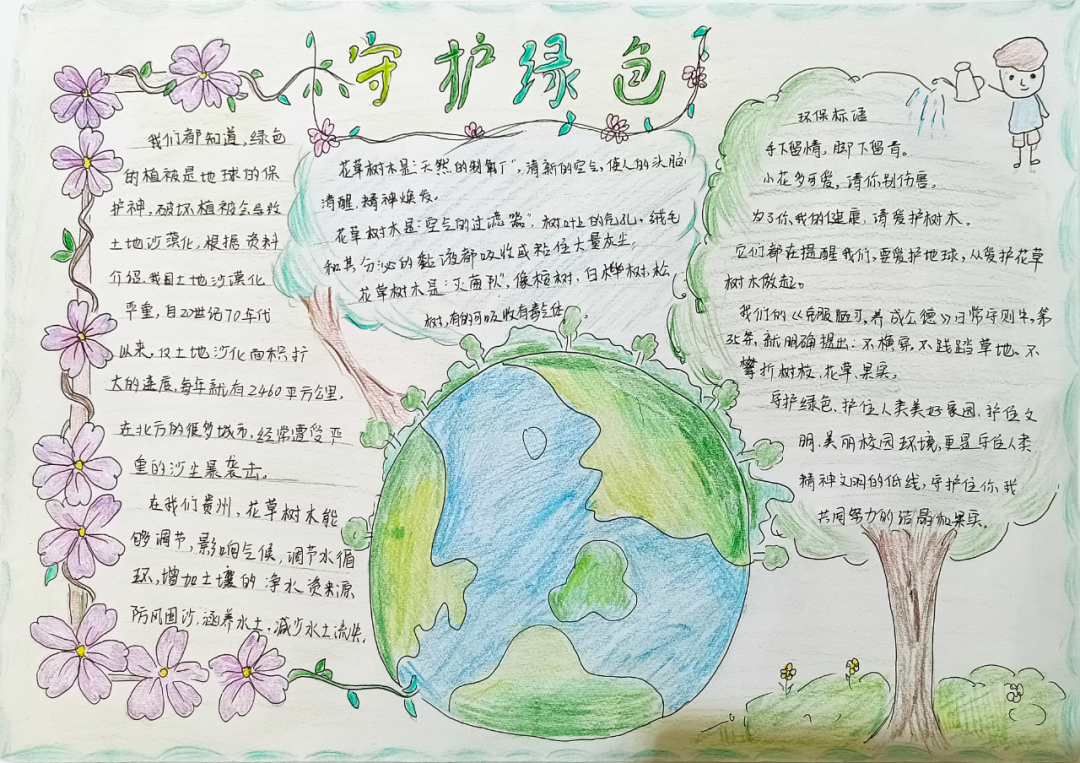 守护绿色
我们都知道，绿色
的植被是地球的保
护神，破坏植被会导致
土地沙漠化，根据资料
介绍，我国土地沙漠化
严重，自20世纪70年代
以来，仅土地沙化面积扩
大的速度，每年就有2460平方公里，
在北方的很多城市，经常遭受严
重的沙尘暴袭击。
在我们贵州，花草树木能
够调节，影响气候，调节水循
环，增加土壤的净水资来源
防风固沙，涵养水土，减少水土流失，
花草树木是“天然的制氧厂”，清新的空气，使人的头脑
清醒，精神焕发。
花草树木是“空气的过滤器”，树叶上的气孔，绒毛
和其分泌的黏液都吸收或粘住大量灰尘
花草树木是“灭菌队”，像桉树、白桦树、松
树，有的可吸收有毒气体。
环保标语
手下留情，脚下留青。
小花多可爱，请你别伤害。
为了你、我的健康，请爱护树木。
它们都在提醒我们，要爱护地球，从爱护花草
树木做起。
我们的《克服陋习，养成公德》日常守则牛，第
35条，就明确提出：不横穿、不践踏草地、不
攀折树枝、花草、果实。
守护绿色、护住人类美好家园、护住文
明、美丽校园环境，更是守住人类
精神文明的低线，守护住你、我
共同努力的结晶和果实。